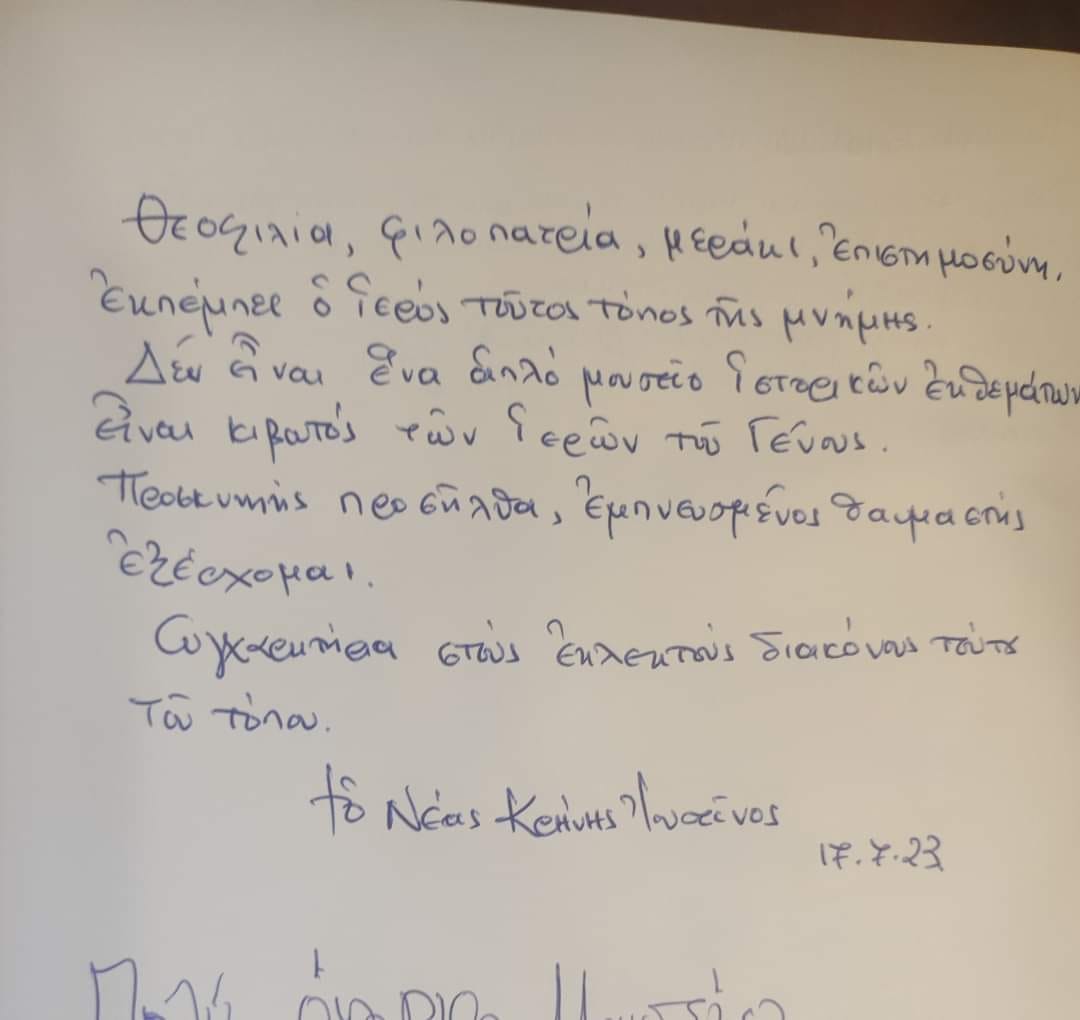 Θεοφιλία, φιλοπατρία, μεράκι, ἐπιστημοσύνη,
ἐκπέμπει ὁ ἱερός τοῦτος τόπος τῆς μνήμης.
Δέν εἶναι ἕνα ἁπλό μουσεῖο ἱστορικῶν ἐκθεμάτων
εἶναι κιβωτός τῶν ἱερῶν τοῦ Γένους.
Προσκυνητής προσῆλθα, ἐμπνευσμένος θαυμαστής
ἐξέρχομαι.
Συγχαρητήρια στούς ἐκλεκτούς διακόνους τούτου
τοῦ τόπου.
†ὁ Νέας Κρήνης Ἰουστῖνος
17.7.23